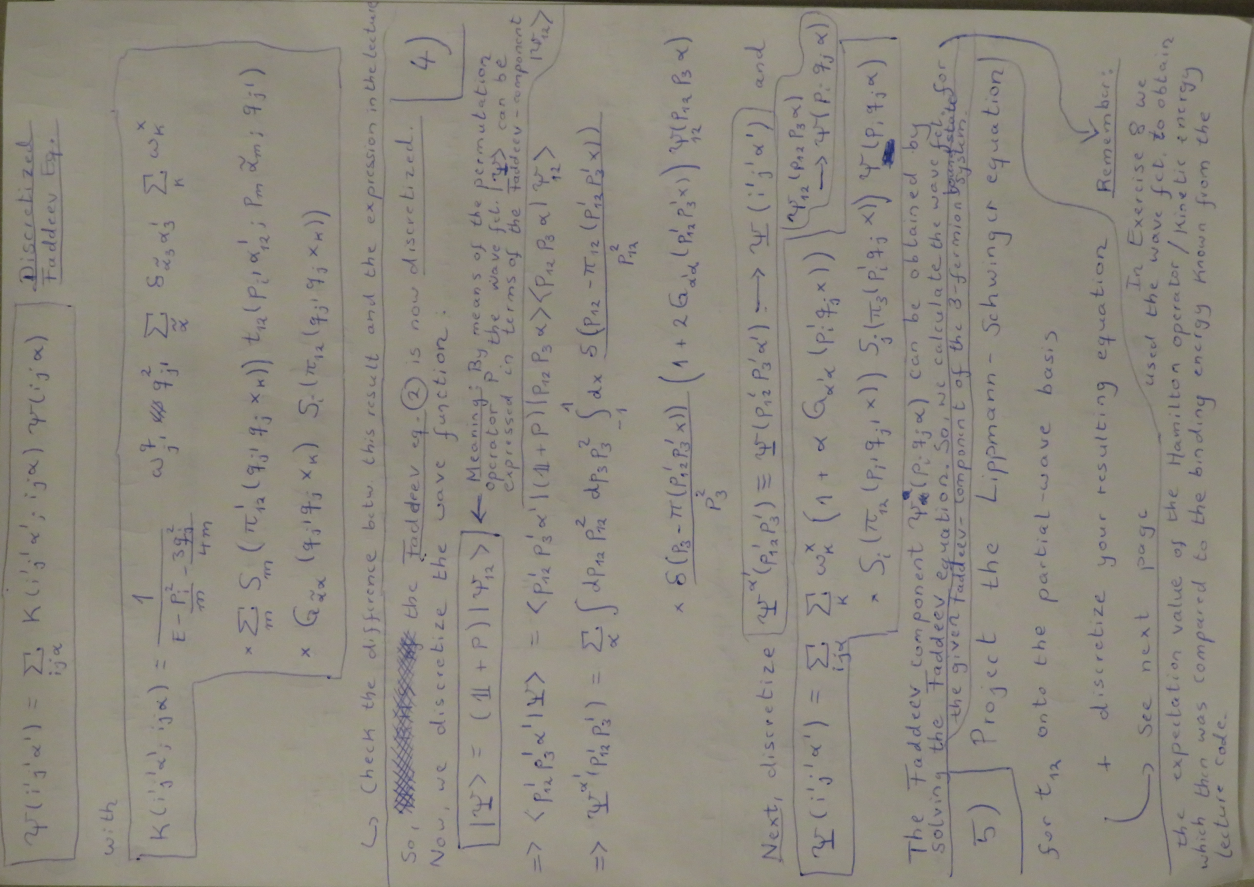 ψ(i'j'α') = Σ_{ijα} K(i'j'α'; ijα) ψ(ijα)
Discretized
Faddeev Eq.
with
K(i'j'α'; ijα) = 1 / (E - p_i'²/m - 3q_j'²/4m) ω_j'^q q_j'² Σ_α̃ δ_{α̃_3 α_3'} Σ_k ω_k^x
× Σ_m S_m(π_12'(q_j' q_j x_k)) t_12(p_i' α_12'; p_m α̃_m; q_j')
× G_{α̃α}(q_j' q_j x_k) S_i(π_12(q_j' q_j x_k))
↳ Check the difference betw. this result and the expression in the lecture
So, the Faddeev eq. ② is now discretized.
4)
Now, we discretize the wave function:
|Ψ> = (𝟙 + P)|ψ_12>
← Meaning: By means of the permutation
operator P the wave fct. |Ψ> can be
expressed in terms of the Faddeev-component |ψ_12>
=> <p_12' p_3' α'|Ψ> = <p_12' p_3' α'|(𝟙+P)|p_12 p_3 α><p_12 p_3 α|ψ_12>
=> Ψ^α'(p_12' p_3') = Σ_α ∫ dp_12 p_12² dp_3 p_3² ∫_{-1}^{1} dx δ(p_12 - π_12(p_12' p_3' x)) / p_12²
× δ(p_3 - π(p_12' p_3' x)) / p_3² (1 + 2G_{α'α}(p_12' p_3' x)) ψ_12(p_12 p_3 α)
Next, discretize Ψ^α'(p_12' p_3') ≡ Ψ(p_12' p_3' α') → Ψ(i'j'α') and
ψ_12(p_12 p_3 α)
→ ψ(p_i q_j α)
Ψ(i'j'α') = Σ_{ijα} Σ_k ω_k^x (1 + α G_{α'α}(p_i' q_j x))
× S_i(π_12(p_i' q_j' x)) S_j(π_3(p_i' q_j x)) ψ(p_i q_j α)
The Faddeev component ψ(p_i q_j α) can be obtained by
solving the Faddeev equation. So, we calculate the wave fct. for
the given Faddeev-component of the 3-fermion bound state
system.
5) Project the Lippmann-Schwinger equation
for t_12 onto the partial-wave basis
+ discretize your resulting equation
↳ See next page
Remember:
In Exercise 8 we
used the wave fct. to obtain
the expectation value of the Hamilton operator/kinetic energy
which then was compared to the binding energy known from the
lecture code.